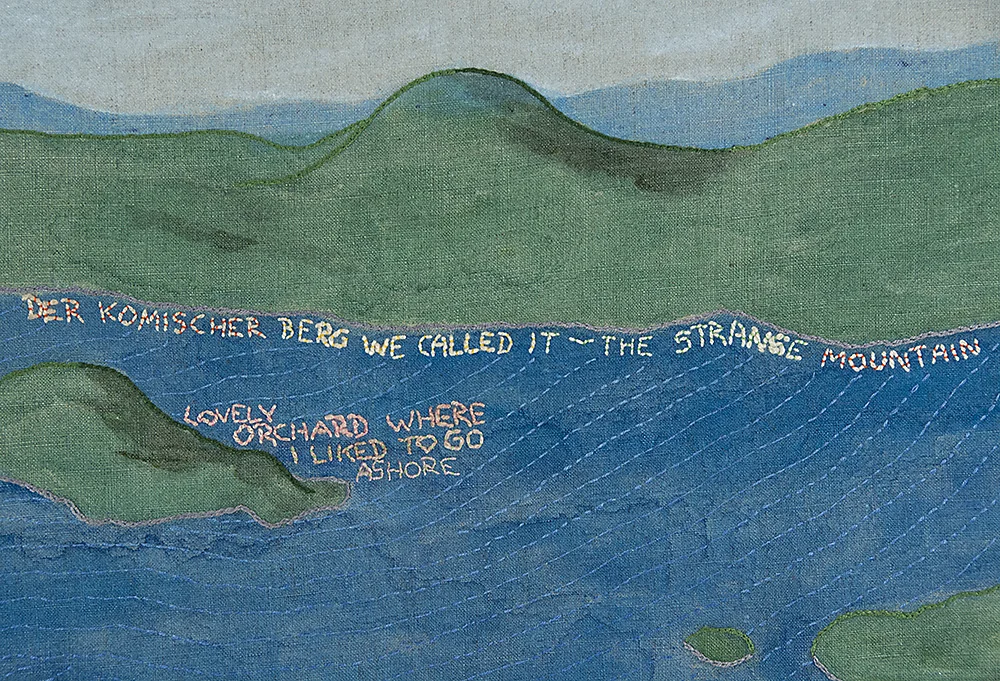 DER KOMISCHER BERG WE CALLED IT – THE STRANGE MOUNTAIN
LOVELY
ORCHARD WHERE
I LIKED TO GO
ASHORE